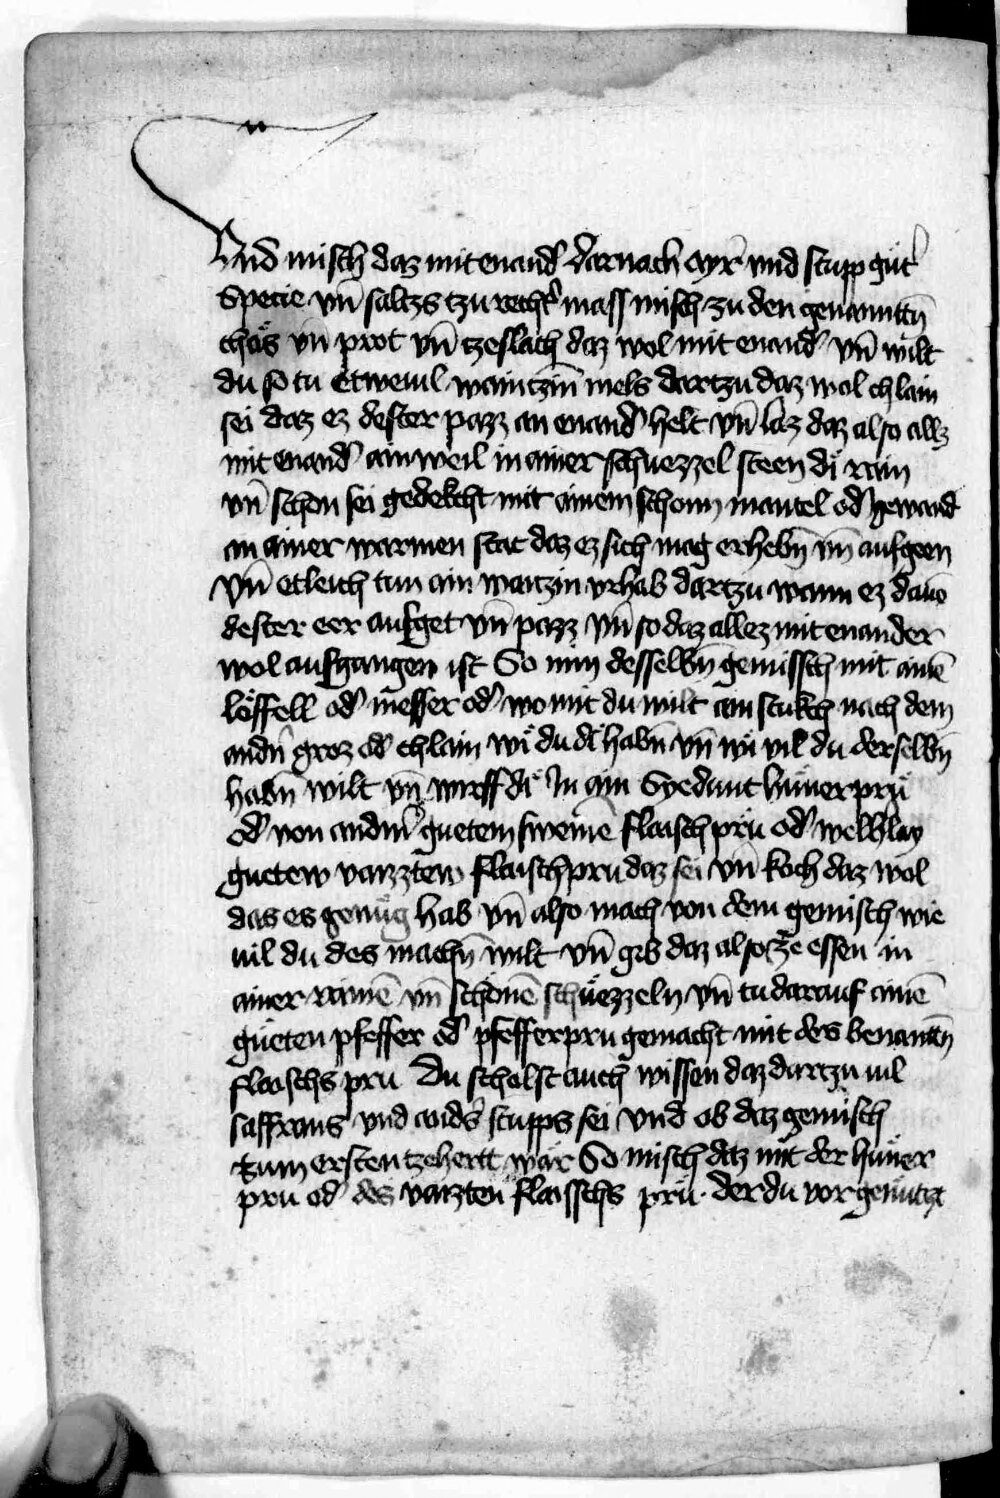 Und misch daz mit enand̕ darnach ayr̄ vnd stupp gůt̕
Specie vn̄ saltzs tzu recht̕ mass misch zu den genantn̄
chäs vn̄ prot vn̄ tzeslach daz wol mit enand̕ vn̄ wilt
du so tu etweuil waitzin̄ mels dartzu daz wol chlain
sei daz ez dester pazz an enand̕ helt vn̄ laz daz also allz
mit enand̕ ain weil in ainer schuezzel steen di̊ rain
vn̄ schon sei gedekcht mit ainem schonn mantel od̕ gewand
an ainer warmen stat daz ez sich mag erhebn̄ vn̄ aufgeen
Vn̄ etleich tun ain waitzin vrhab dartzu wann ez dauō
dester eer aufget vn̄ pazz vn̄ so daz allez mit enander
wol aufgangen ist So nim desselbn̄ gemissch mit ainē
löffell od̕ messer od̕ wo mit du wilt ain stukch nach dem
andn̄ groz od̕ chlain wi̊ du di̊ habn̄ vn̄ wi̊ vil du derselbn̄
habn̄ wilt vn̄ wirff di̊ In ain Syedunt hu̇ner pru̇
od̕ von andm̕ guetem sweinē flaisch pru̇ od̕ welhlay
guetew vaizztew flaischpru daz sei vn̄ koch daz wol
das es genůg hab vn̄ also mach von dem gemisch wie
uil du des machn̄ wilt vn̄ geb daz also ze essen in
ainer rainē vn̄ schönē schüezzeln vn̄ tu darauf ainē
güeten pfeffer od̕ pfefferpru gemacht mit des benantn̄
flaischs pru Du scholst auch wissen daz dartzu uil
saffrans vnd and̕s stupps sei Vnd ob daz gemisch
tzum ersten tzehertt wär So misch daz mit der hüner
pru od̕ des vaizten flaisschs prü. der du vor genutzt